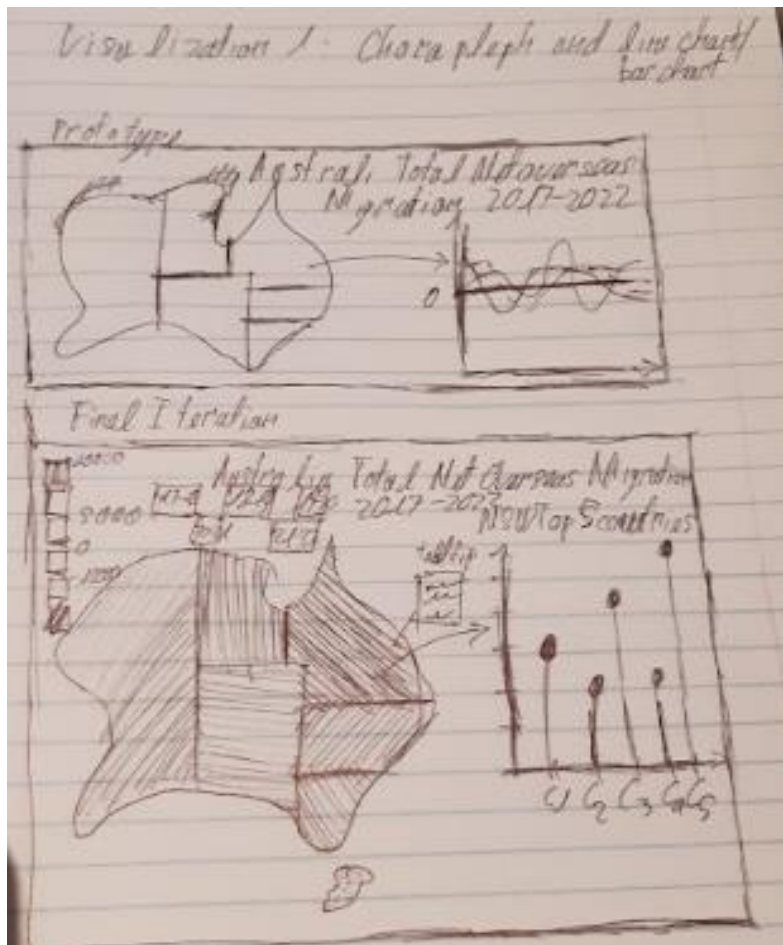 Visualization 1: Choropleph and line chart/
bar chart
Prototype
Australi Total Net overseas
Migration 2017-2022
0
Final Iteration
Australia Total Net Overseas Migration
2017-2022
NSW Top 5 countries
8000
0
tooltip
C1 C2 C3 C4 C5